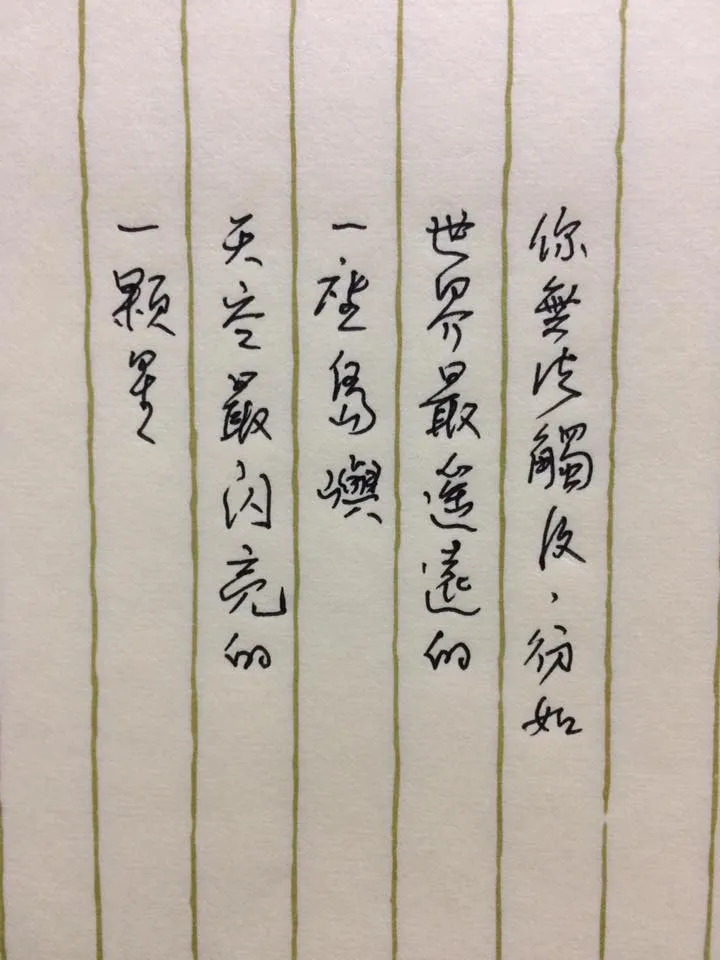 你無法觸及，彷如
世界最遙遠的
一座島嶼
天空最閃亮的
一顆星